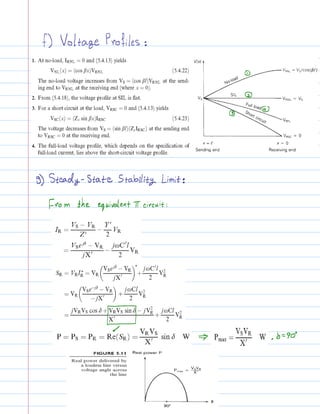 f) Voltage Profiles:
1. At no-load, I_RNL = 0 and (5.4.13) yields
V_NL(x) = (cos βx)V_RNL (5.4.22)
The no-load voltage increases from V_S = (cos βl)V_RNL at the send-
ing end to V_RNL at the receiving end (where x = 0).
2. From (5.4.18), the voltage profile at SIL is flat.
3. For a short circuit at the load, V_RSC = 0 and (5.4.13) yields
V_SC(x) = (Z_c sin βx)I_RSC (5.4.23)
The voltage decreases from V_S = (sin βl)(Z_c I_RSC) at the sending end
to V_RSC = 0 at the receiving end.
4. The full-load voltage profile, which depends on the specification of
full-load current, lies above the short-circuit voltage profile.
V(x)
V_RNL = V_S/(cos βl)
No-load
①
V_S
SIL
②
V_RSIL = V_S
Full load
Short circuit
③
V_RFL
V_RSC = 0
x = l
x = 0
Sending end
Receiving end
g) Steady-State Stability Limit:
From the equivalent π circuit:
I_R = (V_S − V_R)/Z' − (Y'/2) V_R
= (V_S e^jδ − V_R)/jX' − (jωC'l/2) V_R
S_R = V_R I_R* = V_R ((V_S e^jδ − V_R)/jX')* + (jωC'l/2) V_R²
= V_R ((V_S e^−jδ − V_R)/−jX') + (jωCl/2) V_R²
= (jV_R V_S cos δ + V_R V_S sin δ − jV_R²)/X' + (jωCl/2) V_R²
P = P_S = P_R = Re(S_R) = (V_R V_S/X') sin δ W ⇒ P_max = V_S V_R/X' W , δ=90°
FIGURE 5.11
Real power delivered by
a lossless line versus
voltage angle across
the line
Real power P
P_max = V_S V_R/X'
δ
90°